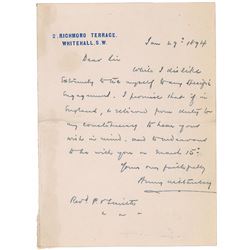 2, RICHMOND TERRACE,
WHITEHALL, S.W.
Jan 29. 1894
Dear Sir
While I dislike
extremely to tie myself to any specific
engagement, I promise that if in
England, & relieved from duty by
my constituency to hear your
wish in mind, and to endeavour
to be with you on March 15.
Yours very faithfully
Henry M Stanley
Revd P.